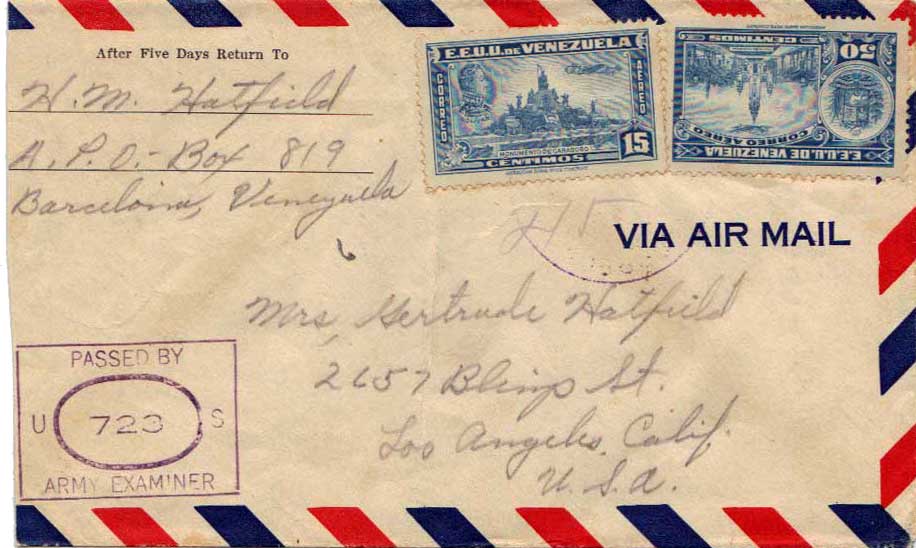 After Five Days Return To
H. M. Hatfield
A. P. O. - Box 819
Barcelona, Venezuela
E.E.U.U. DE VENEZUELA
CORREO
AEREO
MONUMENTO DE CARABOBO
15
CENTIMOS
50
CENTIMOS
CORREO AEREO
E.E.U.U. DE VENEZUELA
VIA AIR MAIL
Mrs. Gertrude Hatfield
2657 Blimp St.
Los Angeles, Calif.
U. S. A.
PASSED BY
U 723 S
ARMY EXAMINER